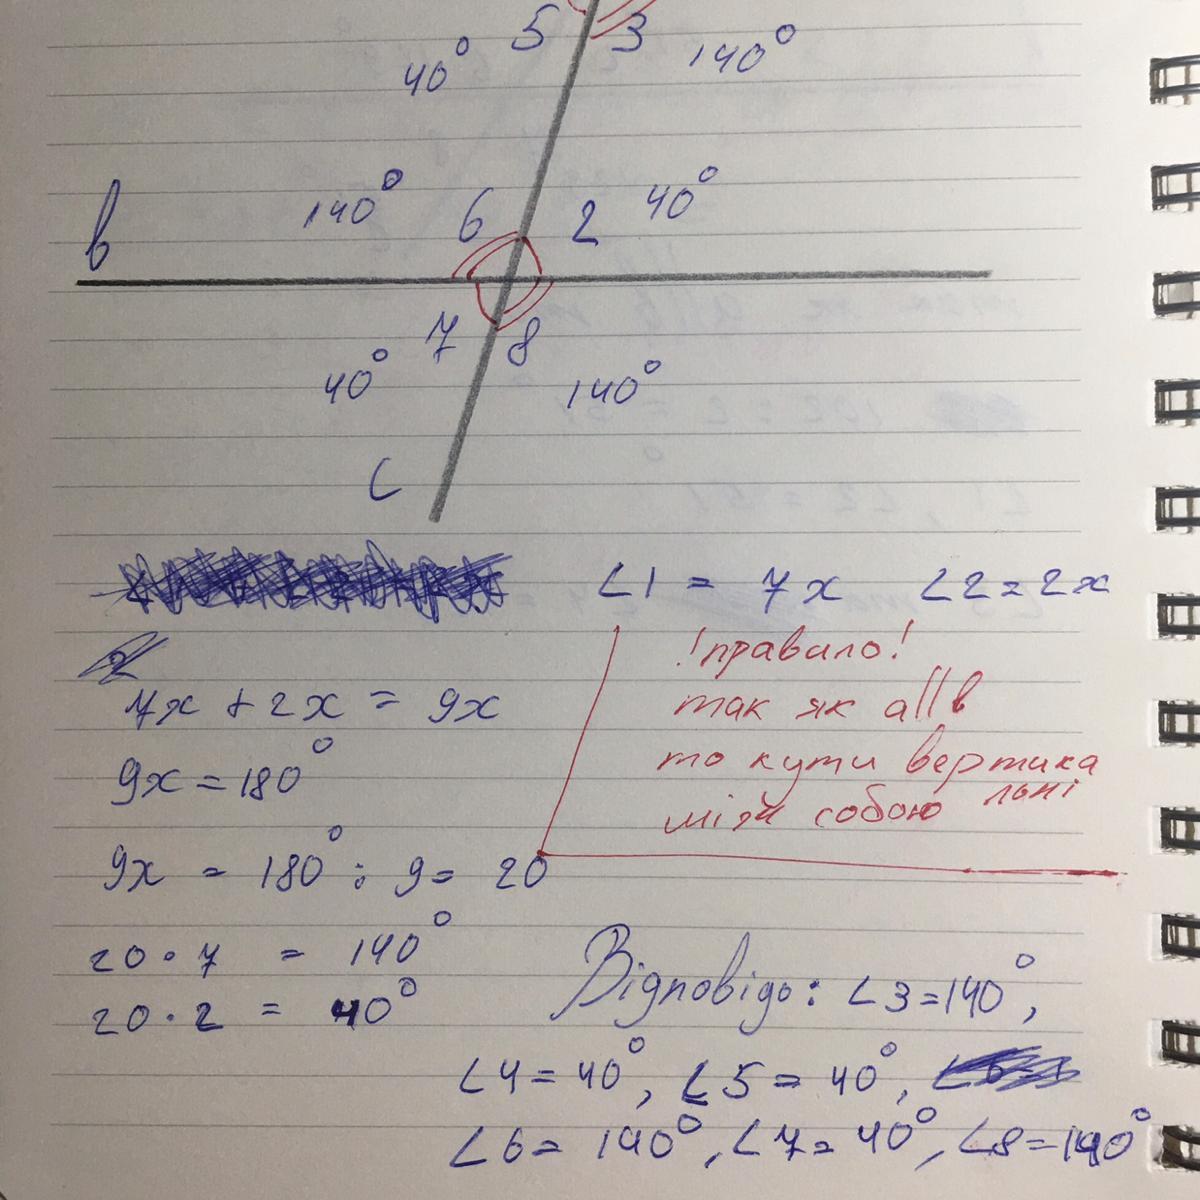 5 3
40° 140°
140° 6 2 40°
b
7 8
40° 140°
c
∠1 = 7x ∠2=2x
!правило!
так як a||b
то кути вертика
льні
між собою
7x + 2x = 9x
9x = 180°
9x = 180° : 9 = 20
20 · 7 = 140°
20 · 2 = 40°
Відповідь: ∠3=140°,
∠4=40°, ∠5=40°,
∠6=140°, ∠7=40°, ∠8=140°